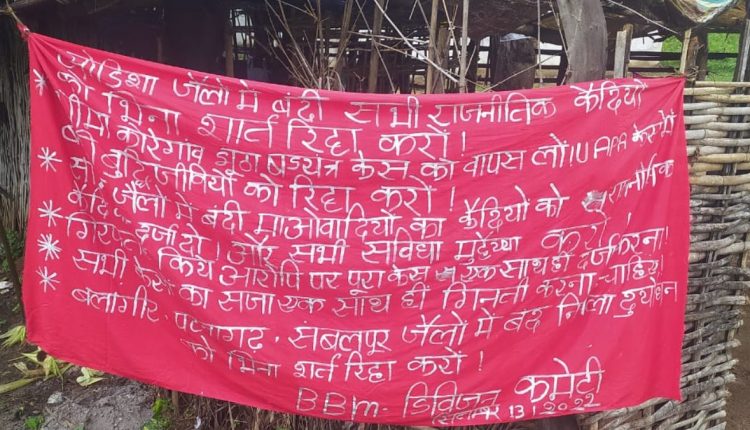 * ओडिशा जेलों में बंदी सभी राजनीतिक कैदियों
को भिना शर्त रिहा करो!
* भीमा कोरेगांव झूठा षडयंत्र केस को वापस लो! UAPA केस में
बंदी बुद्धिजीवियों को रिहा करो!
* जेलों में बंदी माओवादियों का कैदियों को राजनीतिक
कैदि दर्जा दो! और सभी सुविधा मुहैय्या करो!
* गिरफ्तार किये आरोपि पर पूरा केस एक साथ ही दर्ज करना!
सभी केस का सजा एक साथ ही गिनती करना चाहिए!
* बलांगीर, संबलपूर जेलों में बंद दुर्योधन
को भिना शर्त रिहा करो!
BBm- डिविजन कमेटी
13/2022